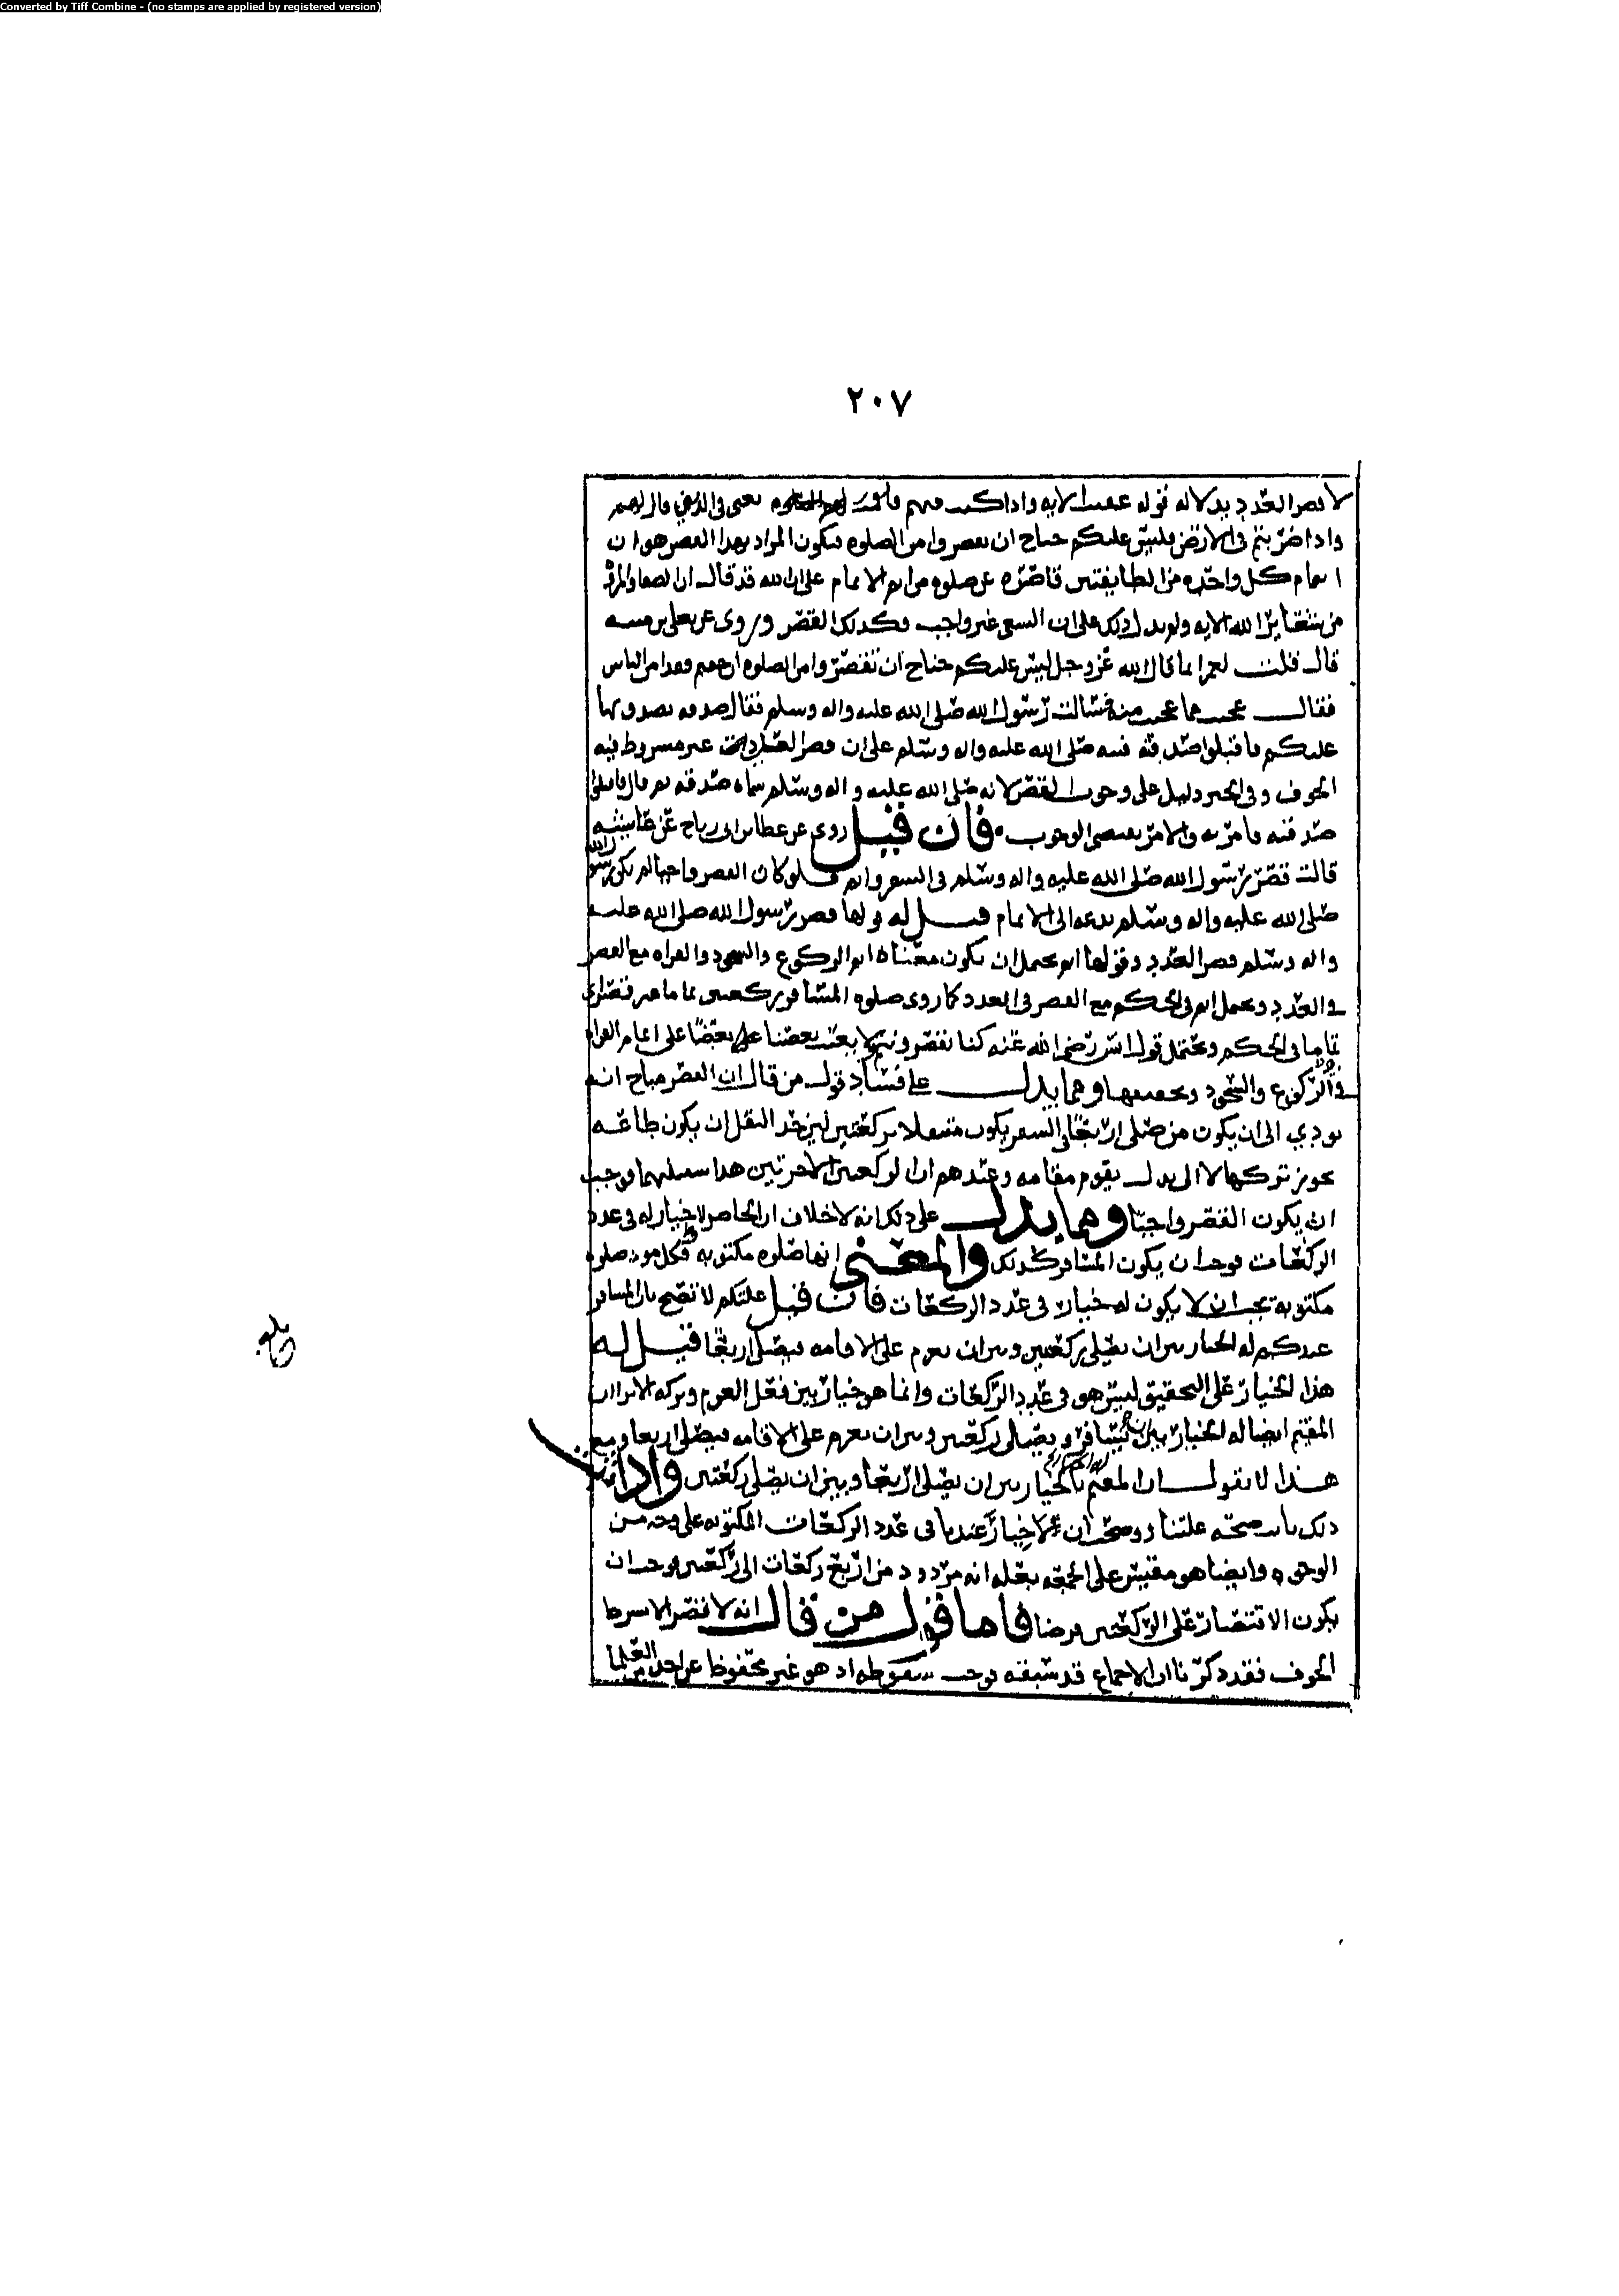 Converted by Tiff Combine - (no stamps are applied by registered version)
٢٠٧
لا قصر العدد بدلاله قوله عقيب الايه واذا كنت فيهم فاقمت لهم الصلوه يعنى
واذا ضربتم فى الارض فليس عليكم جناح ان تقصروا من الصلوه فيكون المراد بهذا القصر هو ان
ايتمام كل واحده من الطايفتين قاصره عن صلوه من ايتم الامام على ان الله قد قال ان الصفا والمروه
من شعاير الله الايه ولم يدل ذلك على ان السعى غير واجب وكذلك القصر وروى عن يعلى بن منيه
قال قلت لعمر انما قال الله عز وجل ليس عليكم جناح ان تقصروا من الصلوه ان خفتم وقد امن الناس
فقال عجبت مما عجبت منه فسالت رسول الله صلى الله عليه واله وسلم فقال صدقه تصدق بها
عليكم فاقبلوا صدقته فنبه صلى الله عليه واله وسلم على ان قصر العدد غير مشروط فيه
الخوف وفى الخبر دليل على وجوب القصر لانه صلى الله عليه واله وسلم سماه صدقه ثم قال فاقبلوا
صدقته فامر به والامر يقتضى الوجوب فان قيل روى عن عطا بن ابى رباح عن عايشه
قالت قصر رسول الله صلى الله عليه واله وسلم فى السفر واتم فلو كان القصر واجبا لم يكن رسول الله
صلى الله عليه واله وسلم يدعه الى الاتمام قيل له قولها قصر رسول الله صلى الله عليه
واله وسلم قصر العدد وقولها اتم يحتمل ان يكون معناه اتم الركوع والسجود والقراه مع القصر
فى العدد ويحتمل اتم فى الحكم مع القصر فى العدد كما روى صلوه المسافر ركعتين تماما غير قصر اى
تماما فى الحكم ويحتمل قول انس رضى الله عنه كنا نقصر ونتم لا يعتب بعضنا على بعض على اتمام القراه
فى الركوع والسجود وتخفيفها ومما يدل على فساد قول من قال ان القصر مباح انه
يودي الى ان يكون من صلى اربعا فى السفر يكون متنفلا بركعتين لان حد النفل ان يكون طاعه
يجوز تركها لا الى بدل يقوم مقامه وعندهم ان الركعتين الاخرتين هذا سبيلهما فوجب
ان يكون القصر واجبا ومما يدل على ذلك انه لا خلاف ان الحاضر لا خيار له فى عدد
الركعات فوجب ان يكون المسافر كذلك والمعنى انها صلوه مكتوبه فكل صلوه
مكتوبه يجب ان لا يكون له خيار فى عدد الركعات فان قيل علتكم لا تصح لان المسافر
عندكم له الخيار بين ان يصلى ركعتين وبين ان يعزم على الاقامه فيصلى اربعا قيل له
هذا الخيار على التحقيق ليس هو فى عدد الركعات وانما هو خيار بين فعل العزم وتركه الا ترا ان
المقيم ايضا له الخيار بين ان يسافر ويصلى ركعتين وبين ان يعزم على الاقامه فيصلى اربعا ومع
هذا لا نقول ان المقيم بالخيار بين ان يصلى اربعا وبين ان يصلى ركعتين واذا
ذلك بان صحه علتنا ووضح ان لا خيار عندنا فى عدد الركعات المكتوبه على وجه من
الوجوه وايضا هو مقيس على الجمعه بعله انه مردود من اربع ركعات الى ركعتين فوجب ان
يكون الاقتصار على الركعتين فرضا فاما قول من قال انه لا قصر الا بشرط
الخوف فقد ذكرنا ان الاجماع قد سبقه فوجب سقوطه اذ هو غير محفوظ عن احد من العلما